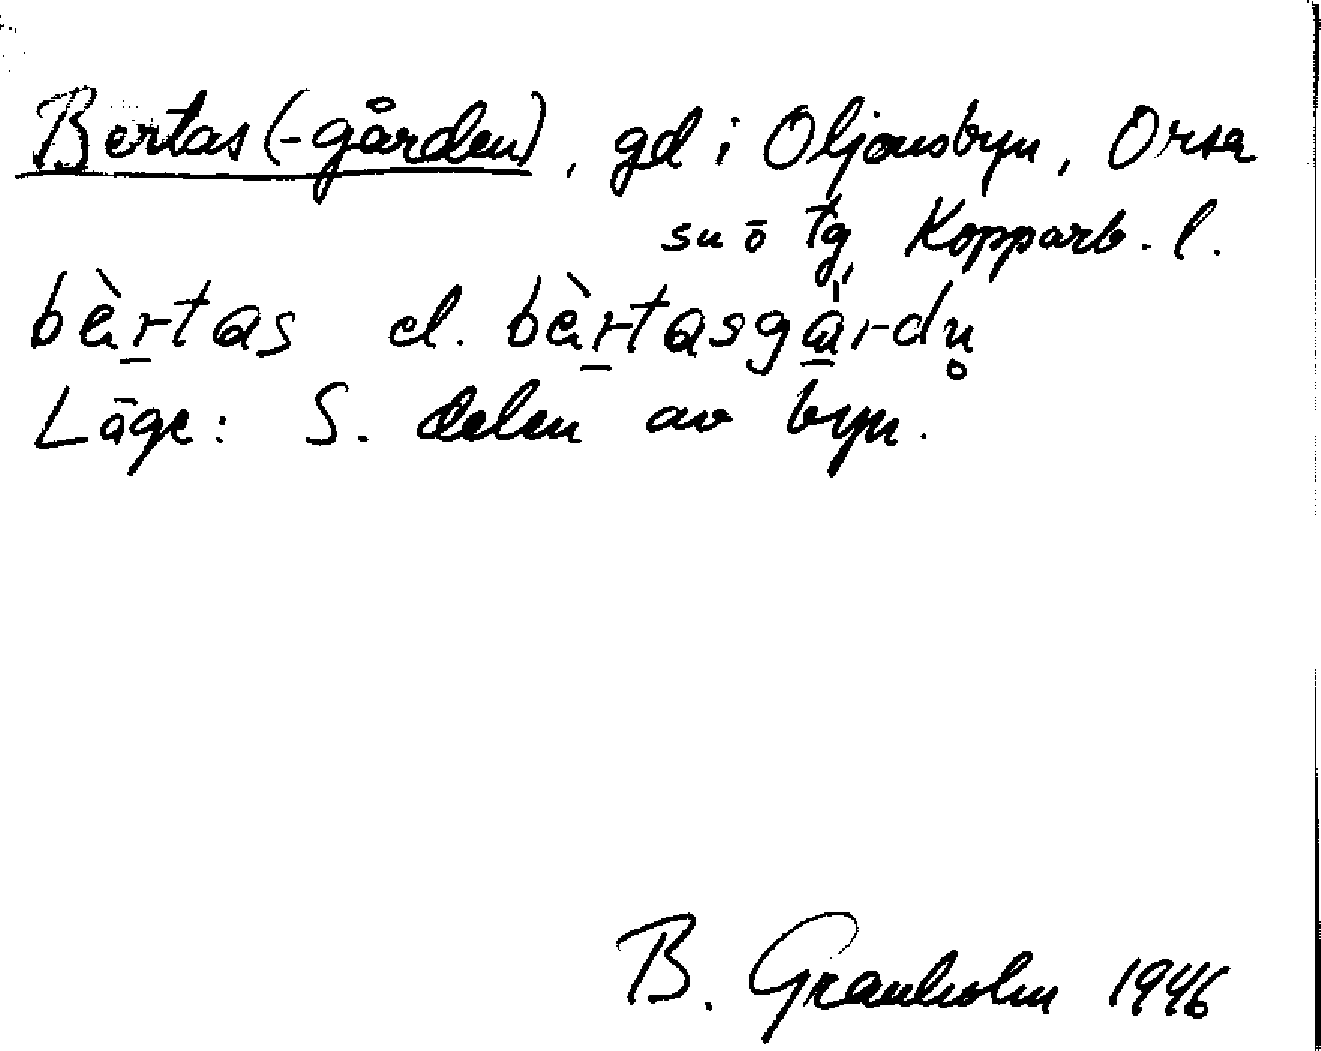 Bertas(-gården), gd i Oljonsbyn, Orsa
sn ō tg, Kopparb. l.
bὲr̲tas el. bὲr̲tasga̲rdn̥
Läge: S. delen av byn.
B. Granholm 1946